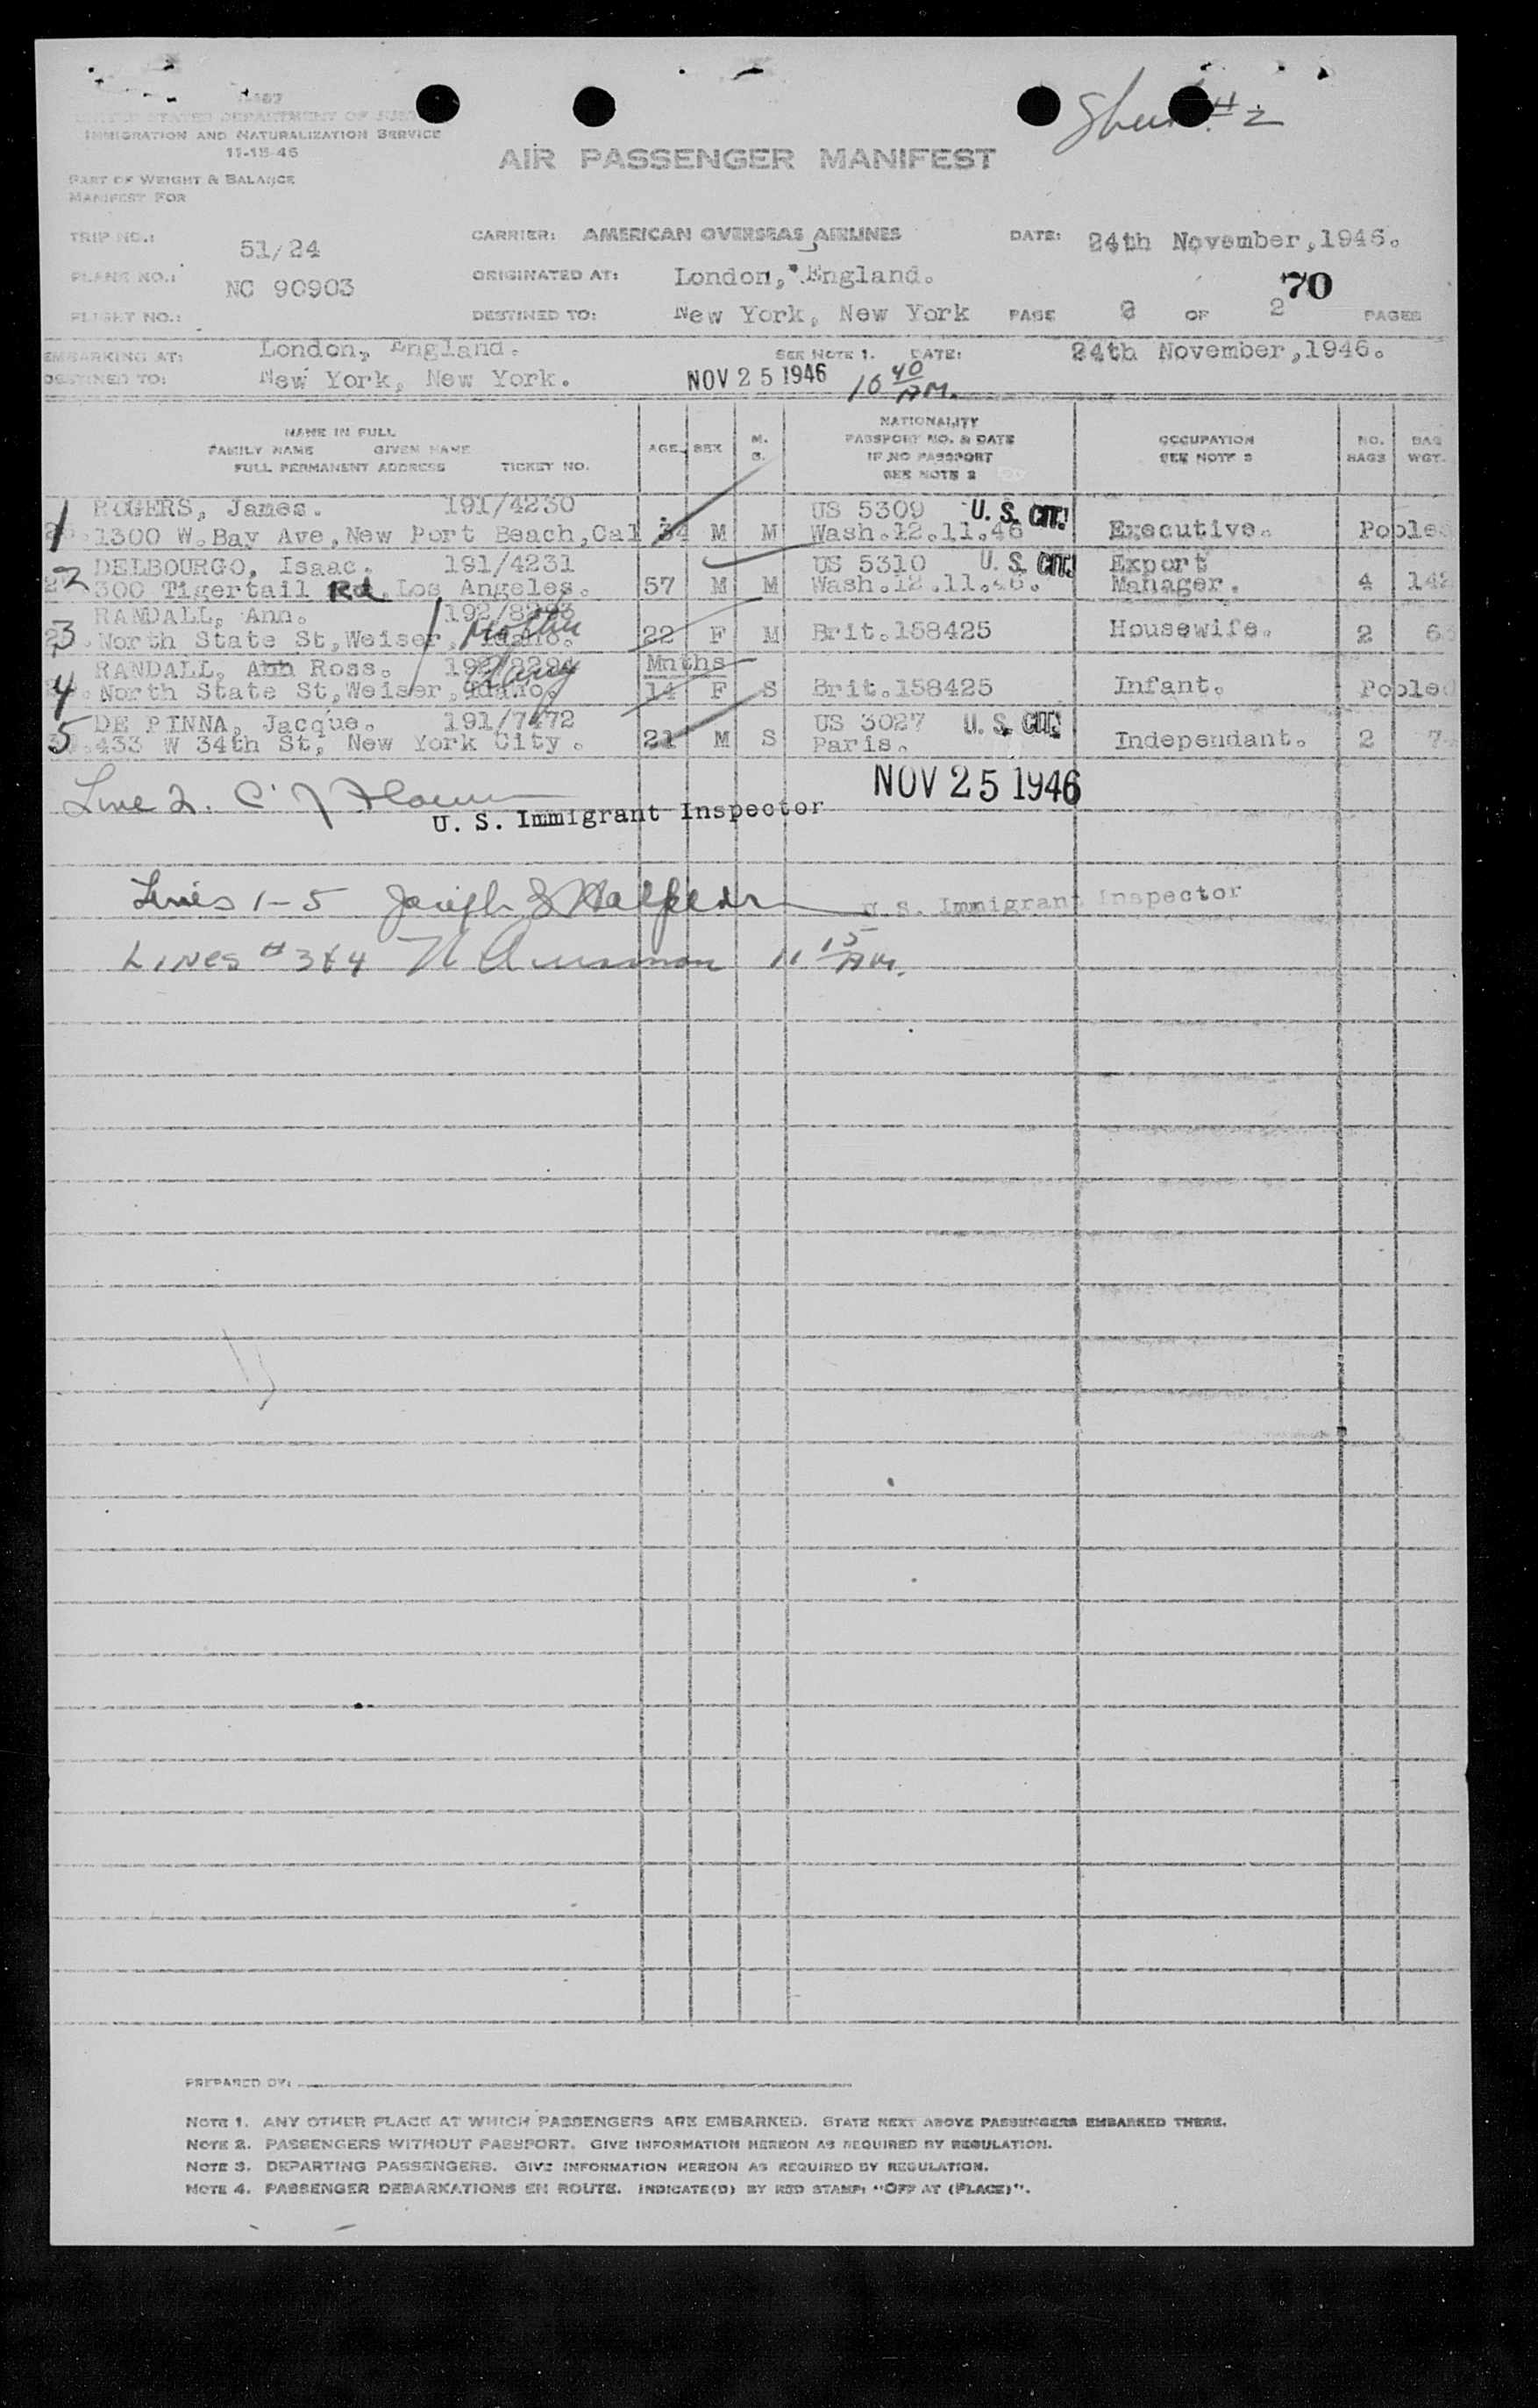 Sheet #2
UNITED STATES DEPARTMENT OF JUSTICE
IMMIGRATION AND NATURALIZATION SERVICE
11-15-45
AIR PASSENGER MANIFEST
PART OF WEIGHT & BALANCE
MANIFEST FOR
TRIP NO.: 51/24 CARRIER: AMERICAN OVERSEAS AIRLINES DATE: 24th November,1946.
PLANE NO.: NC 90903 ORIGINATED AT: London, England. 70
FLIGHT NO.: DESTINED TO: New York, New York PAGE 2 OF 2 PAGES
EMBARKING AT: London, England. SEE NOTE 1. DATE: 24th November,1946.
DESTINED TO: New York, New York. NOV 25 1946 10 40 AM.
NAME IN FULL
FAMILY NAME GIVEN NAME
FULL PERMANENT ADDRESS TICKET NO.
AGE SEX M. S.
NATIONALITY
PASSPORT NO. & DATE
IF NO PASSPORT
SEE NOTE 2
OCCUPATION
SEE NOTE 3
NO. BAGS
BAG WGT.
1 ROGERS, James. 191/4230 US 5309 U. S. CIT.
1300 W.Bay Ave,New Port Beach,Cal 34 M M Wash.12.11.46 Executive. Pooled
2 DELBOURGO, Isaac. 191/4231 US 5310 U. S. CIT. Export
300 Tigertail Rd. Los Angeles. 57 M M Wash.12.11.46. Manager. 4 142
RANDALL, Ann. 192/8293
3 North State St,Weiser, Idaho. 22 F M Brit.158425 Housewife. 2
RANDALL, Ann Ross. 192/8294 Mnths
4 North State St,Weiser, Idaho. 14 F S Brit.158425 Infant. Pooled
DE PINNA, Jacque. 191/7472 US 3027 U. S. CIT.
5 433 W 34th St, New York City. 21 M S Paris. Independant. 2
Line 2. NOV 25 1946
U. S. Immigrant Inspector
Lines 1-5 Joseph U. S. Immigrant Inspector
LINES #3&4 11 15 AM.
PREPARED BY:
NOTE 1. ANY OTHER PLACE AT WHICH PASSENGERS ARE EMBARKED. STATE NEXT ABOVE PASSENGERS EMBARKED THERE.
NOTE 2. PASSENGERS WITHOUT PASSPORT. GIVE INFORMATION HEREON AS REQUIRED BY REGULATION.
NOTE 3. DEPARTING PASSENGERS. GIVE INFORMATION HEREON AS REQUIRED BY REGULATION.
NOTE 4. PASSENGER DEBARKATIONS EN ROUTE. INDICATE(D) BY RED STAMP: "OFF AT (PLACE)".